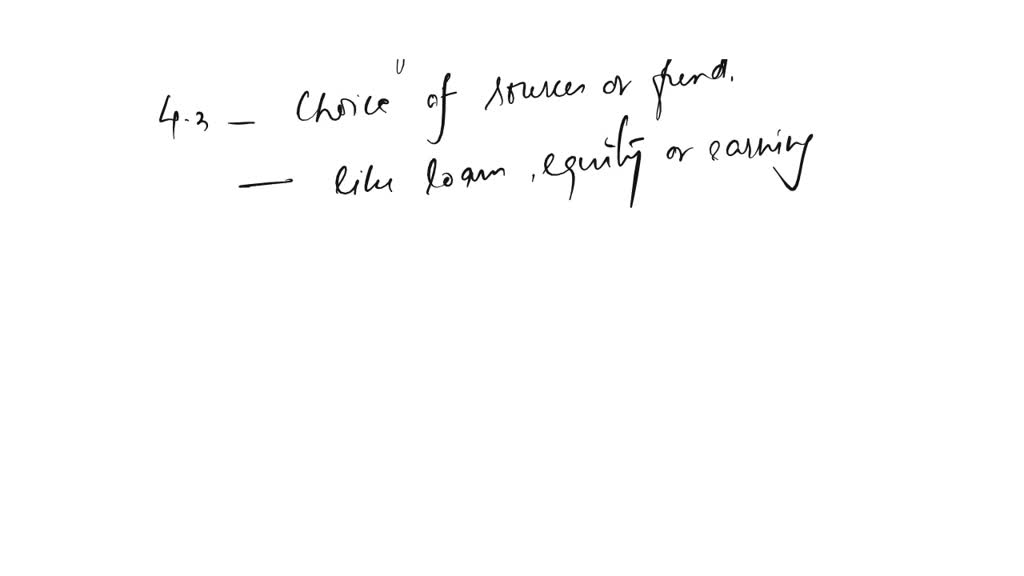 4.3 - Choice of sources of fund.
- like loan, equity or earning